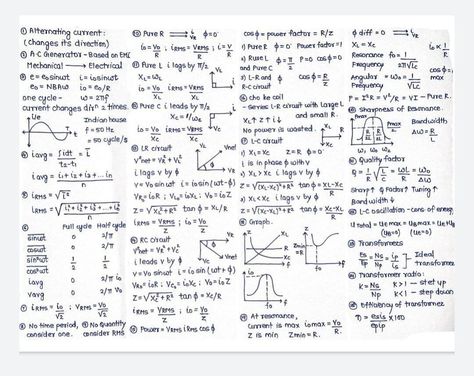 ① Alternating current:
(changes its direction)
② A·C Generator - Based on EMI
Mechanical → Electrical
③ e = e₀ sinωt i = i₀ sinωt
e₀ = NBAω i₀ = e₀/R
one cycle - ω = 2πf
current changes dirⁿ 2 times.
Indian house
f = 50 Hz
= 50 cycle/s
④ i avg = ∫idt / ∫dt = i̅
i avg = i₁ + i₂ + i₃ ... iₙ / n
⑤ iRMS = √i̅²
iRMS = √(i₁² + i₂² + i₃² ... iₙ² / n)
⑥ Full cycle Half cycle
sinωt 0 2/π
cosωt 0 2/π
sin²ωt 1/2 1/2
cos²ωt 1/2 1/2
i avg 0 2/π i₀
v avg 0 2/π V₀
⑦ iRMS = i₀/√2 VRMS = V₀/√2
⑧ No time period, consider one. ⑨ No quantity consider RMS
⑩ Pure R V i ϕ = 0°
i₀ = V₀/R ; iRMS = VRMS/R ; i = V/R
⑪ Pure L i lags by π/2
XL = ωL
i₀ = V₀/XL iRMS = VRMS/XL
⑫ Pure C i leads by π/2
XC = 1/ωC
i₀ = V₀/XC iRMS = VRMS/XC
⑬ LR circuit
V²net = VR² + VL²
i lags v by ϕ
V = V₀ sin ωt i = i₀ sin(ωt - ϕ)
VR₀ = i₀R ; VL₀ = i₀XL ; V₀ = i₀Z
Z = √XL² + R² tan ϕ = XL/R
iRMS = VRMS/Z ; i₀ = V₀/Z
⑭ RC circuit
V²net = VR² + VC²
i leads v by ϕ
V = V₀ sinωt i = i₀ sin(ωt + ϕ)
VR₀ = i₀R ; VC₀ = i₀XC ; V₀ = i₀Z
Z = √XC² + R² tan ϕ = XC/R
iRMS = VRMS/Z ; i₀ = V₀/Z
⑮ Power = VRMS iRMS cosϕ
cosϕ = power factor = R/Z
① Pure R ϕ = 0 Power factor = 1
② Pure L and Pure C ϕ = π/2 P = 0 cosϕ = 0
③ L-R and R-C circuit cosϕ = R/Z
⑯ choke coil
- Series L-R circuit with large L and small R.
XL↑ Z↑ i↓
No power is wasted.
⑰ L-C-R circuit
① XL = XC Z = R ϕ = 0°
i is in phase with v
② XL > XC i lags v by ϕ
Z = √(XL-XC)² + R² tan ϕ = XL-XC/R
③ XC > XL i leads v by ϕ
Z = √(XC-XL)² + R² tan ϕ = XC-XL/R
⑱ Graph.
XL
XC
R
f₀
Z
⑲ At resonance,
current is max i₀max = V₀/R
Z is min Zmin = R.
ϕ diff = 0
XL = XC
Resonance Frequency f₀ = 1/2π√LC
Angular Frequency ω₀ = 1/√LC
P = I²R = V²/R = VI - Pure R.
sharpness of Resonance.
Pmax
Bandwidth
Δω = R/L
Quality factor
Q = 1/R √L/C = ω₀L/R = ω₀/Δω
Sharp↑ Q factor↑ Tuning↑
Bandwidth↓
L-C oscillation - cons of energy
Transformers
es/ep = Ns/Np = ip/is } Ideal transformer
Transformer ratio:
K = Ns/Np K > 1 → step up
K < 1 → step down
Efficiency of transformer
η = es is / ep ip × 100